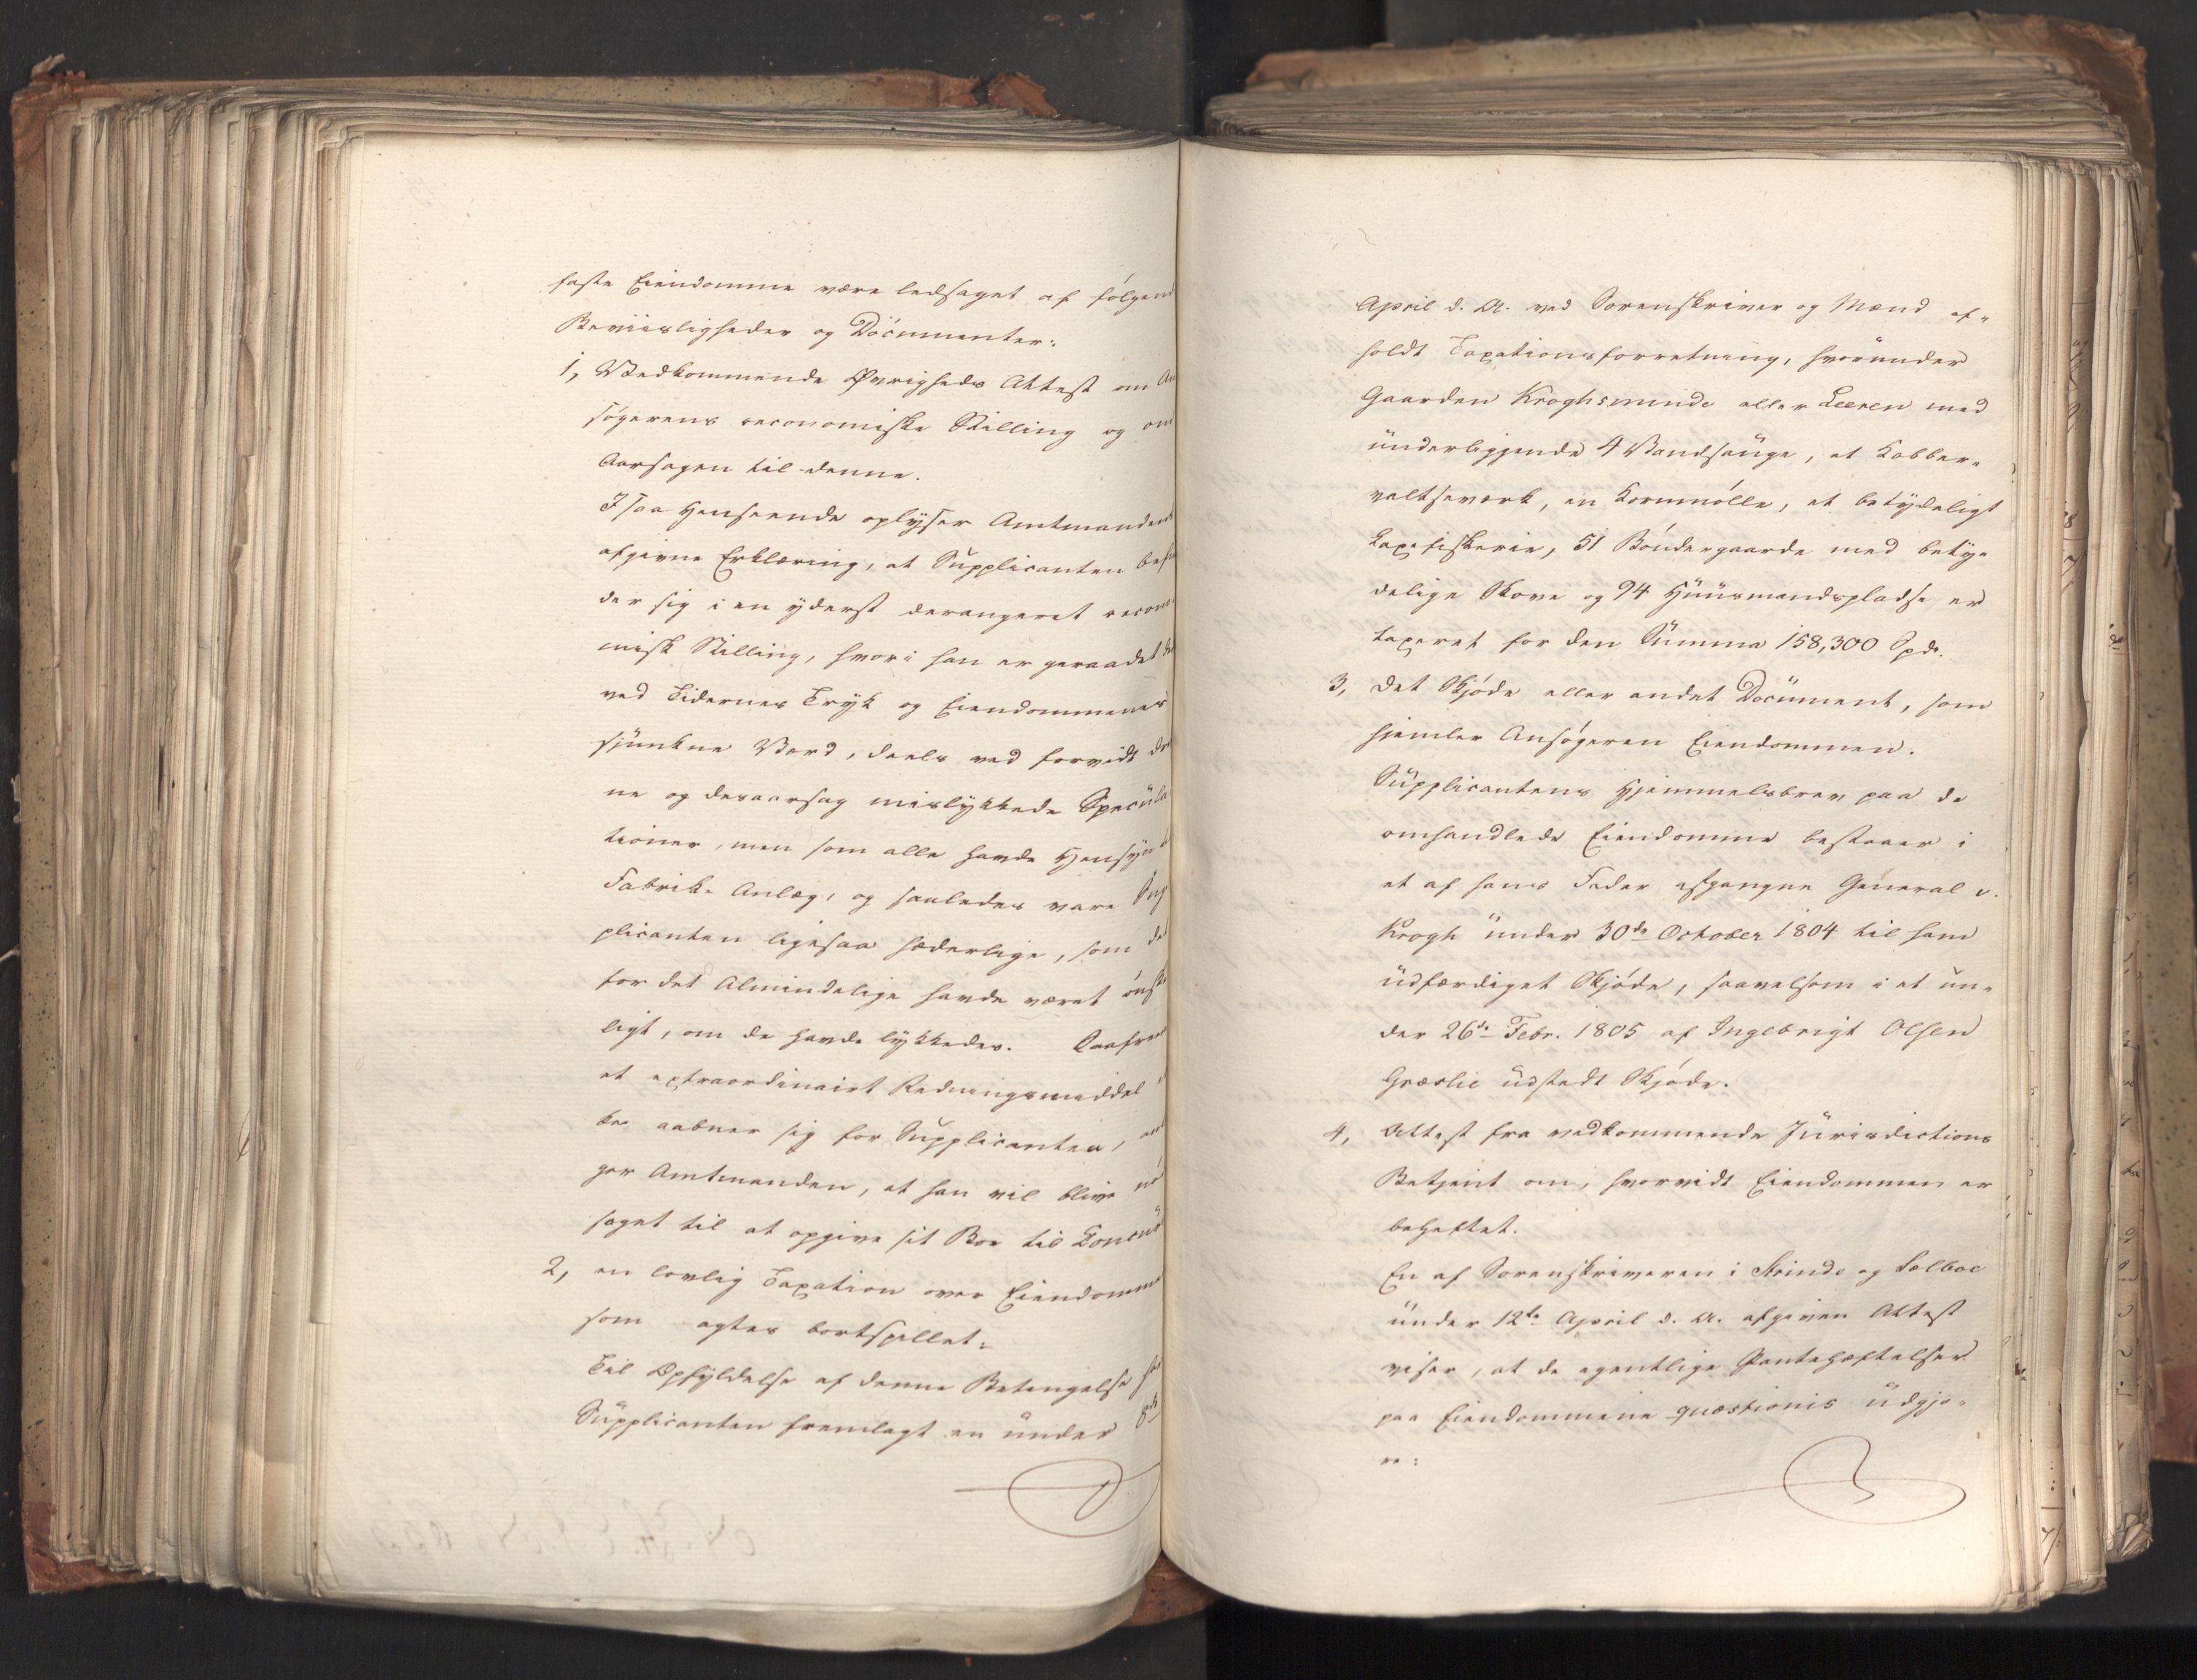 faste Eiendomme være ledsaget af følgend
Beviisligheder og Documenter:
1, Vedkommende Øvrigheds Attest om An
søgerens oeconomiske Stilling og om
Aarsagen til denne.
I saa Henseende oplyser Amtmandens
afgivne Erklæring, at Supplicanten befin
der sig i en yderst derangeret oecono
misk Stilling, hvori han er geraadet
ved Tidernes Tryk og Eiendommenes
sjunkne Værd, deels ved forvidt dre
ne og desaarsag mislykkede Specula
tioner, men som alle havde Hensyn
Fabrik- Anlæg, og saaledes vare Sup
plicanten ligesaa hæderlige, som det
for det Almindelige havde været ønske
ligt, om de havde lykkedes. Saafremt
et extraordinairt Redningsmiddel
ke aabner sig for Supplicanten, an
ger Amtmanden, at han vil blive nø
saget til at opgive sit Boe til Concur
2, en lovlig Taxation over Eiendomme
som agtes bortspillet:
Til Opfyldelse af denne Betingelse har
Supplicanten fremlagt en under 8de
April d. A. ved Sorenskriver og Mænd af-
holdt Taxationsforretning, hvorunder
Gaarden Kroghsminde eller Leeren med
underliggende 4 Vandsauge, et Kobber-
valtseværk, en Kornmølle, et betydeligt
Laxefiskerie, 51 Bøndergaarde med bety-
delige Skove og 94 Huusmandspladse er
taxeret for den Summa 158,300 Spd.
3, Det Skjøde eller andet Document, som
hjemler Ansøgeren Eiendommen.
Supplicantens Hjemmelsbrev paa de
omhandlede Eiendomme bestaaer i
et af hans Fader afgangne General v.
Krogh under 30de October 1804 til ham
udfærdiget Skjøde, saavelsom i et un-
der 26de Febr. 1805 af Ingebrigt Olsen
Græslie udstedt Skjøde.
4, Attest fra vedkommende Jurisdictions
Betjent om, hvorvidt Eiendommen er
beheftet.
En af Sorenskriveren i Strinde og Selboe
under 12te April d. A. afgiven Attest
viser, at de egentlige Pantehæftelser
paa Eiendommene quæstionis udgjø-
re: